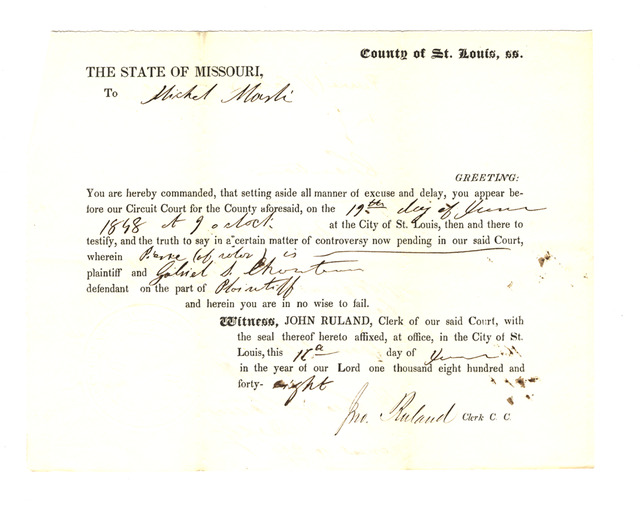 County of St. Louis, ss.
THE STATE OF MISSOURI,
To Michel Marli
GREETING:
You are hereby commanded, that setting aside all manner of excuse and delay, you appear be-
fore our Circuit Court for the County aforesaid, on the 19th day of June
1848 at 9 oclock at the City of St. Louis, then and there to
testify, and the truth to say in a certain matter of controversy now pending in our said Court,
wherein Pierre (of color) is
plaintiff and Gabriel S. Chouteau
defendant on the part of Plaintiff
and herein you are in no wise to fail.
Witness, JOHN RULAND, Clerk of our said Court, with
the seal thereof hereto affixed, at office, in the City of St.
Louis, this day of June
in the year of our Lord one thousand eight hundred and
forty- eight
Jno. Ruland Clerk C. C.